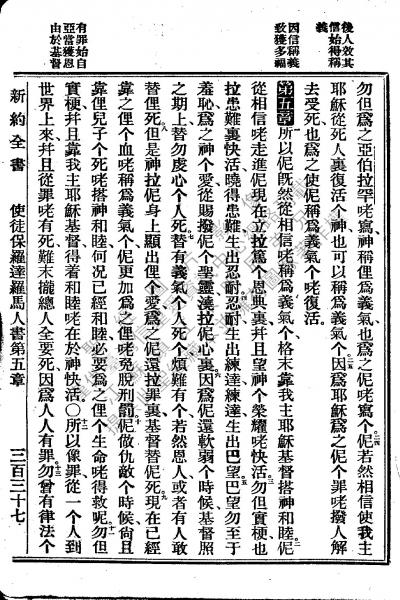 後人效其
信始得稱
義
因信稱義
致獲多福
有罪始自
亞當獲恩
由於基督
勿但爲之亞伯拉罕咾寫神稱俚爲義氣也爲之伲咾寫个伲若然相信使我主
耶穌從死人裏復活个神也可以稱爲義氣个因爲耶穌爲之伲个罪咾撥人解
去受死也爲之使伲稱爲義氣个咾復活
第五章 所以伲旣然從相信咾稱爲義氣个格末靠我主耶穌基督搭神和睦伲
從相信咾走進伲現在立拉篤个恩典裏幷且望神个榮耀咾快活勿但實梗也
拉患難裏快活曉得患難生出忍耐忍耐生出練達練達生出巴望巴望勿至于
羞恥爲之神个愛從賜撥伲个聖靈澆拉伲心裏因爲伲還軟弱个時候基督照
之期上替勿虔心个人死替有義氣个人死个煩難有个若然恩人或者有人敢
替俚死但是神拉伲身上顯出俚个愛爲之伲還拉罪裏基督替伲死現在已經
靠之俚个血咾稱爲義氣个伲更加爲之俚咾免脫刑罰伲做仇敵个時候尙且
靠俚兒子个死咾搭神和睦何况已經和睦必要爲之俚个生命咾得救呢勿但
實梗幷且靠我主耶穌基督得着和睦咾在於神快活○所以像罪從一个人到
世界上來幷且從罪咾有死難末攏總人全要死因爲人人有罪勿曾有律法个
新約全書 使徒保羅達羅馬人書第五章 三百三十七